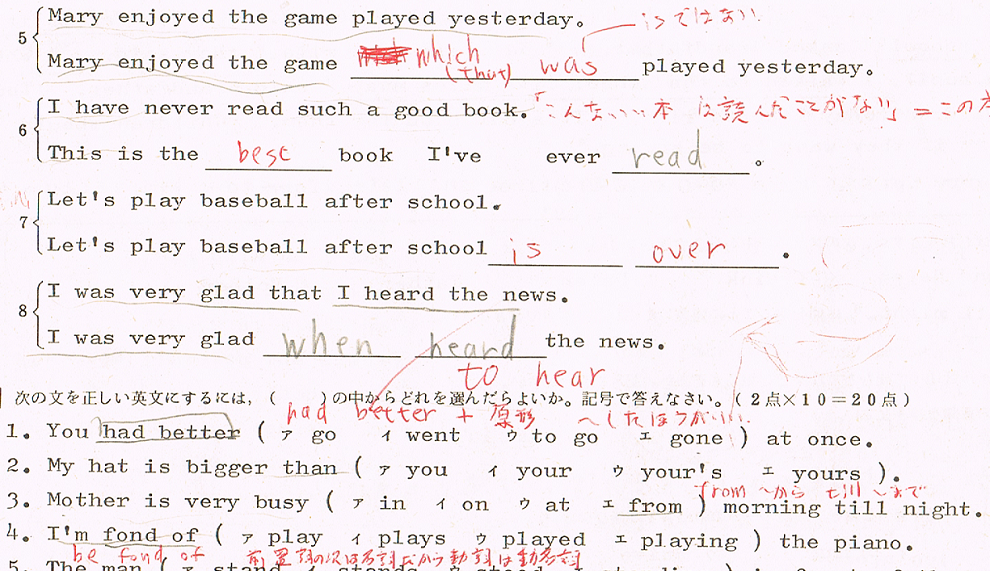 5 Mary enjoyed the game played yesterday.
isではない
Mary enjoyed the game which was played yesterday.
(that)
6 I have never read such a good book.「こんないい本は読んだことがない」=この本
This is the best book I've ever read 。
7 Let's play baseball after school.
Let's play baseball after school is over .
8 I was very glad that I heard the news.
I was very glad when heard the news.
to hear
次の文を正しい英文にするには,(　　)の中からどれを選んだらよいか。記号で答えなさい。(2点×10=20点)
had better + 原形 〜したほうがいい
1. You had better ( ァ go ィ went ゥ to go ェ gone ) at once.
2. My hat is bigger than ( ァ you ィ your ゥ your's ェ yours ).
from 〜から till 〜まで
3. Mother is very busy ( ァ in ィ on ゥ at ェ from ) morning till night.
4. I'm fond of ( ァ play ィ plays ゥ played ェ playing ) the piano.
be fond of 前置詞の次は名詞だから動詞は動名詞
5. The man ( ァ stand